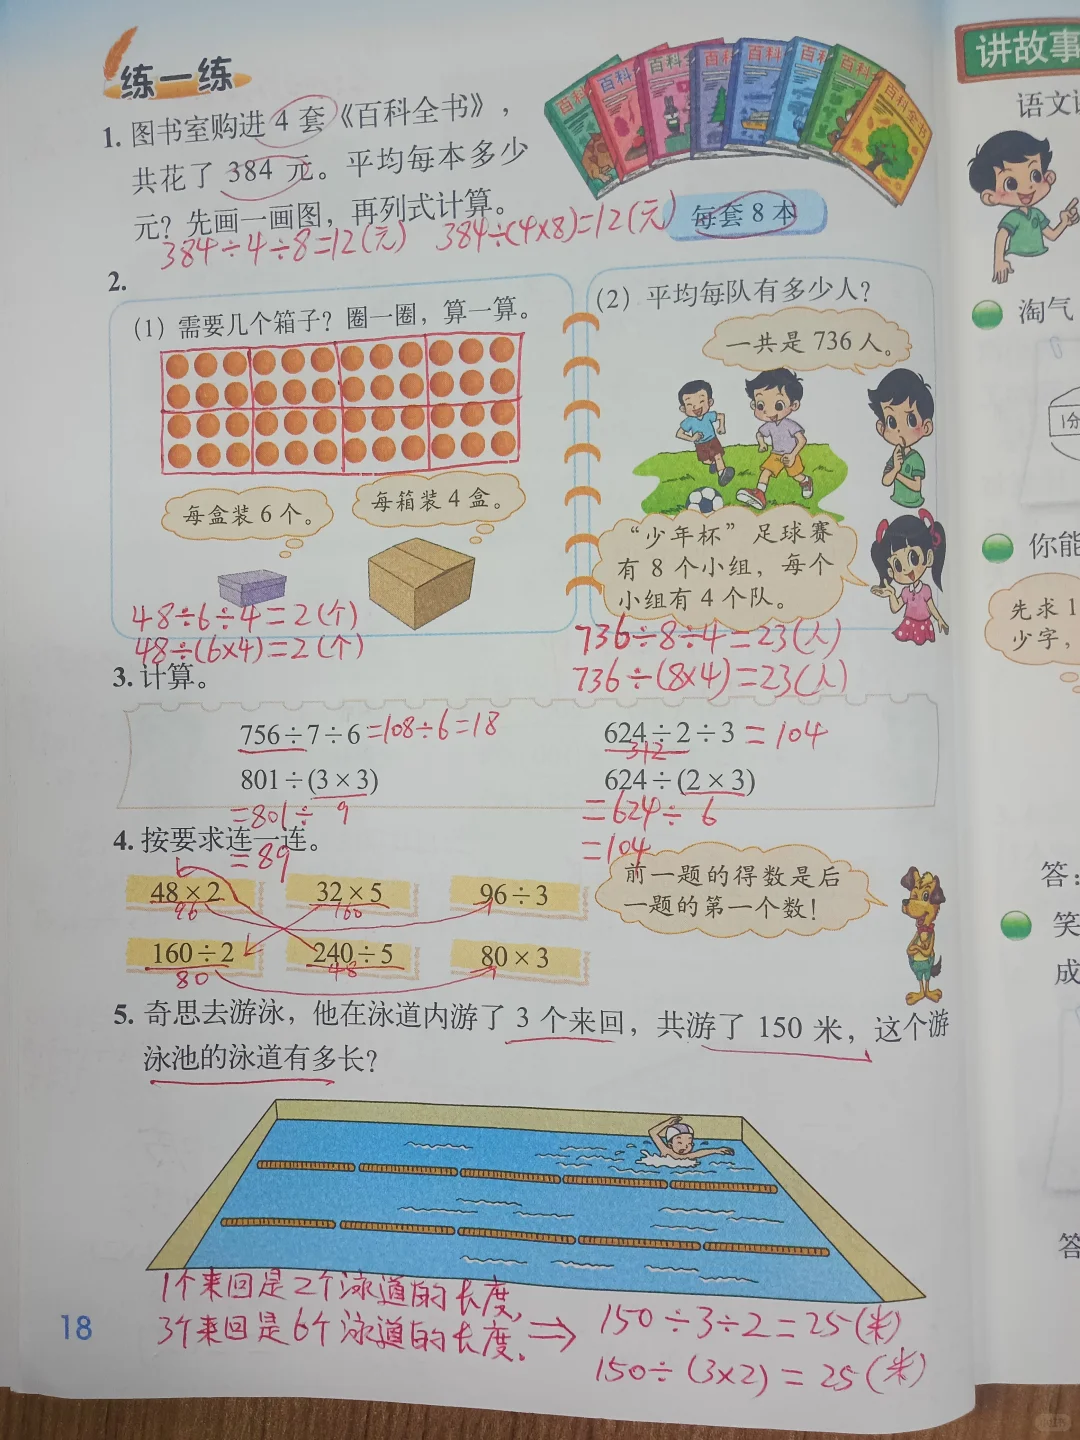 练一练
1. 图书室购进 4 套《百科全书》，
共花了 384 元。平均每本多少
元？先画一画图，再列式计算。
384÷4÷8=12(元) 384÷(4×8)=12(元)
百科
百科
百科全
百科
百科
百科
百科全
百科全书
每套 8 本
2.
（1）需要几个箱子？圈一圈，算一算。
每盒装 6 个。
每箱装 4 盒。
48÷6÷4=2(个)
48÷(6×4)=2(个)
（2）平均每队有多少人？
一共是 736 人。
“少年杯”足球赛
有 8 个小组，每个
小组有 4 个队。
736÷8÷4=23(人)
736÷(8×4)=23(人)
3. 计算。
756÷7÷6=108÷6=18
624÷2÷3=104
312
801÷(3×3)
=801÷9
=89
624÷(2×3)
=624÷6
=104
4. 按要求连一连。
48×2
96
32×5
160
96÷3
160÷2
80
240÷5
48
80×3
前一题的得数是后
一题的第一个数！
5. 奇思去游泳，他在泳道内游了 3 个来回，共游了 150 米，这个游
泳池的泳道有多长？
1个来回是2个泳道的长度，
3个来回是6个泳道的长度。⇒
150÷3÷2=25(米)
150÷(3×2)=25(米)
18
讲故事
语文
淘气
1分
你能
先求 1
少字，
答：
笑
成
答